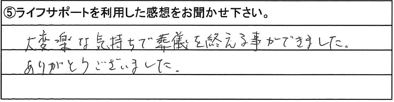 ⑤ライフサポートを利用した感想をお聞かせ下さい。
大変楽な気持ちで葬儀を終える事ができました。
ありがとうございました。